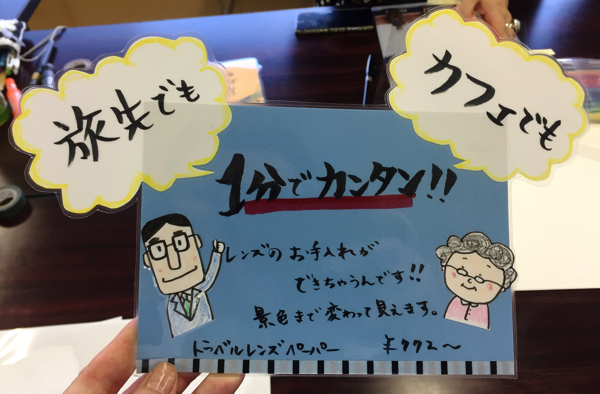 旅先でも
カフェでも
1分でカンタン!!
レンズのお手入れが
できちゃうんです!!
景色まで変わって見えます。
トラベルレンズペーパー ¥772〜